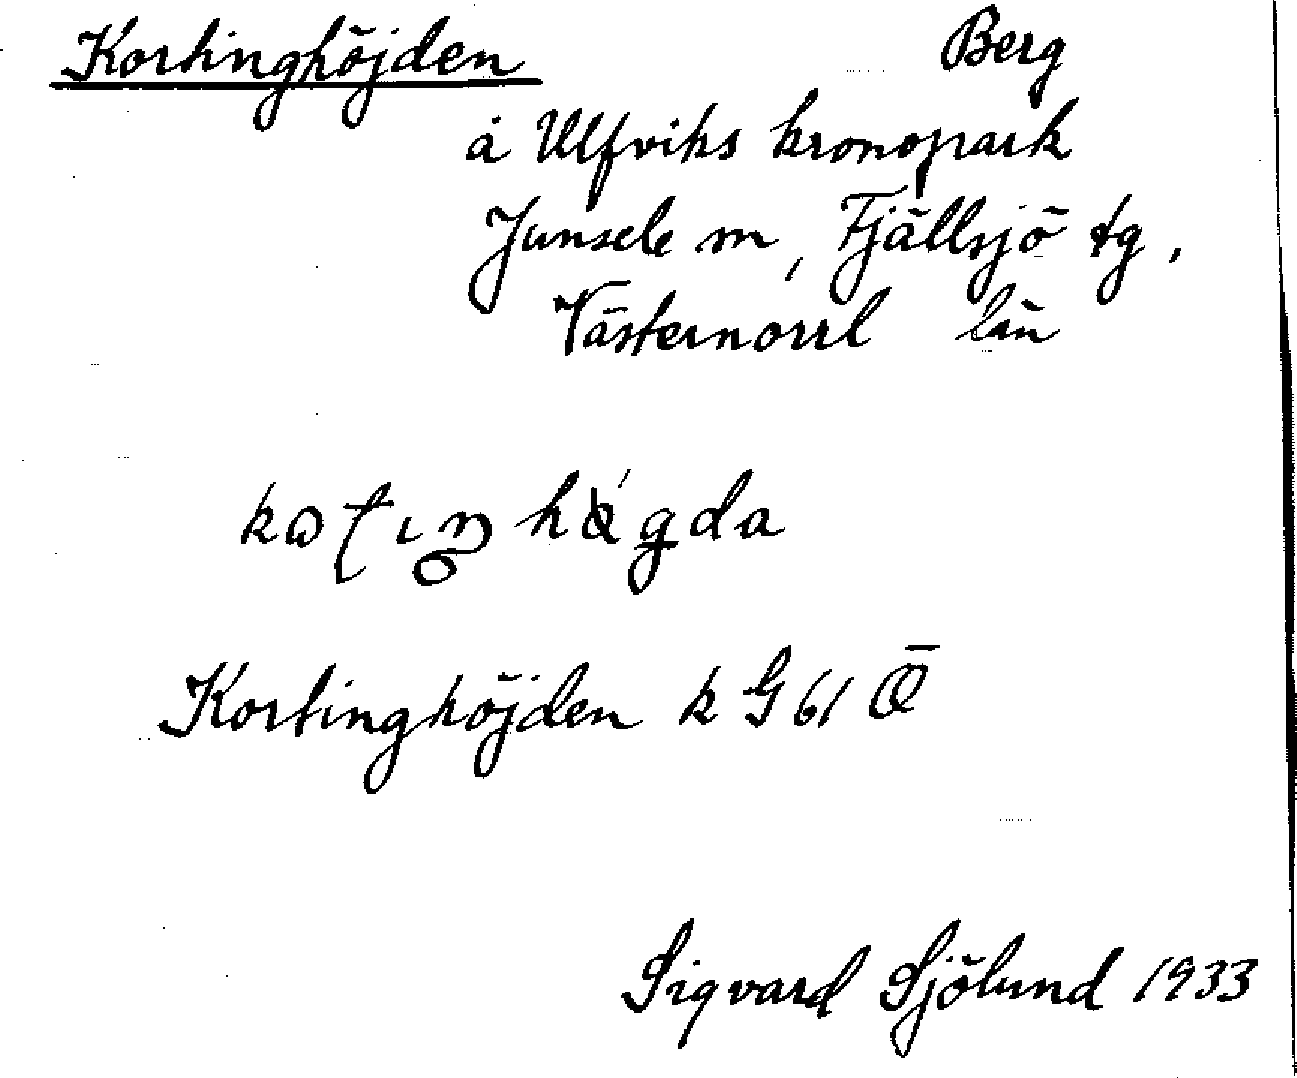 Kortinghöjden Berg
å Ulfviks kronopark
Junsele sn, Fjällsjö tg,
Västernorrl län
Kortinghöjden k G 61 Ö
Sigvard Sjölund 1933